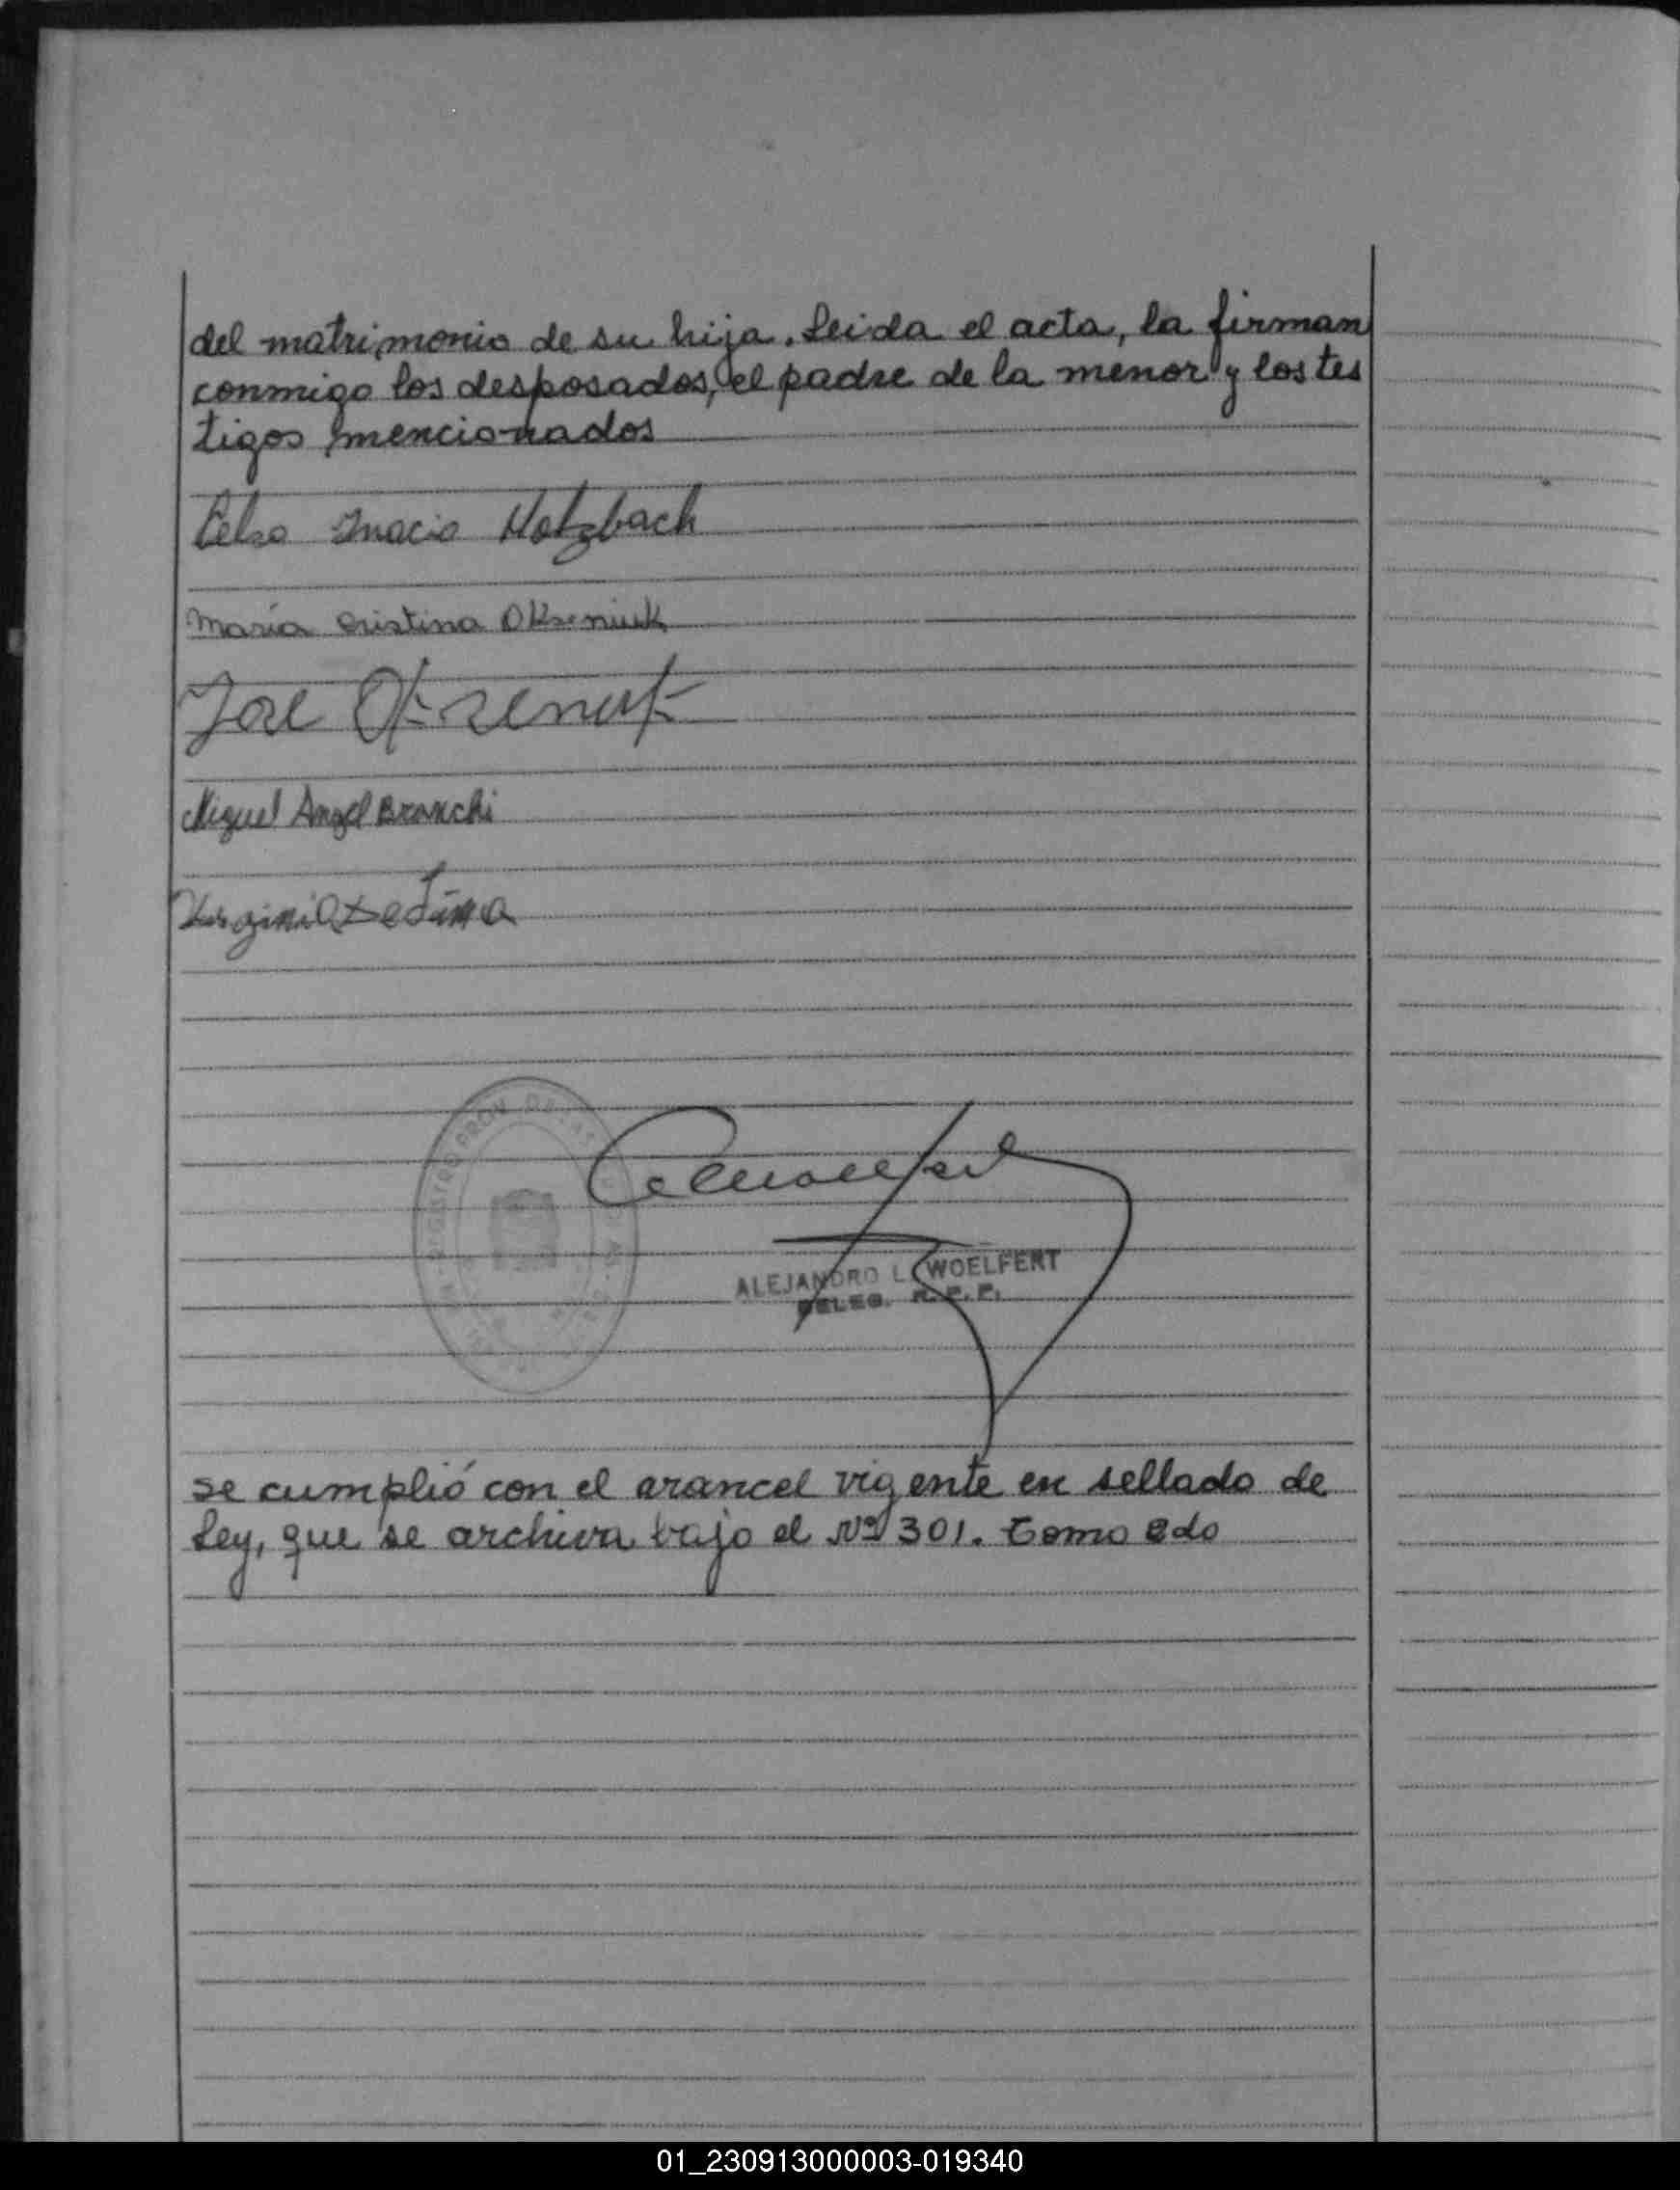 del matrimonio de su hija. Leida el acta, la firman
conmigo los desposados, el padre de la menor y los tes
tigos mencionados
Celso Inacio Hotzbach
María Cristina Okseniuk
Jose
Miguel Angel Branchi
Virginia De Lima
ALEJANDRO L. WOELFERT
DELEG. R.P.P.
se cumplió con el arancel vigente en sellado de
Ley, que se archiva bajo el Nº 301. Tomo 2do
01_230913000003-019340